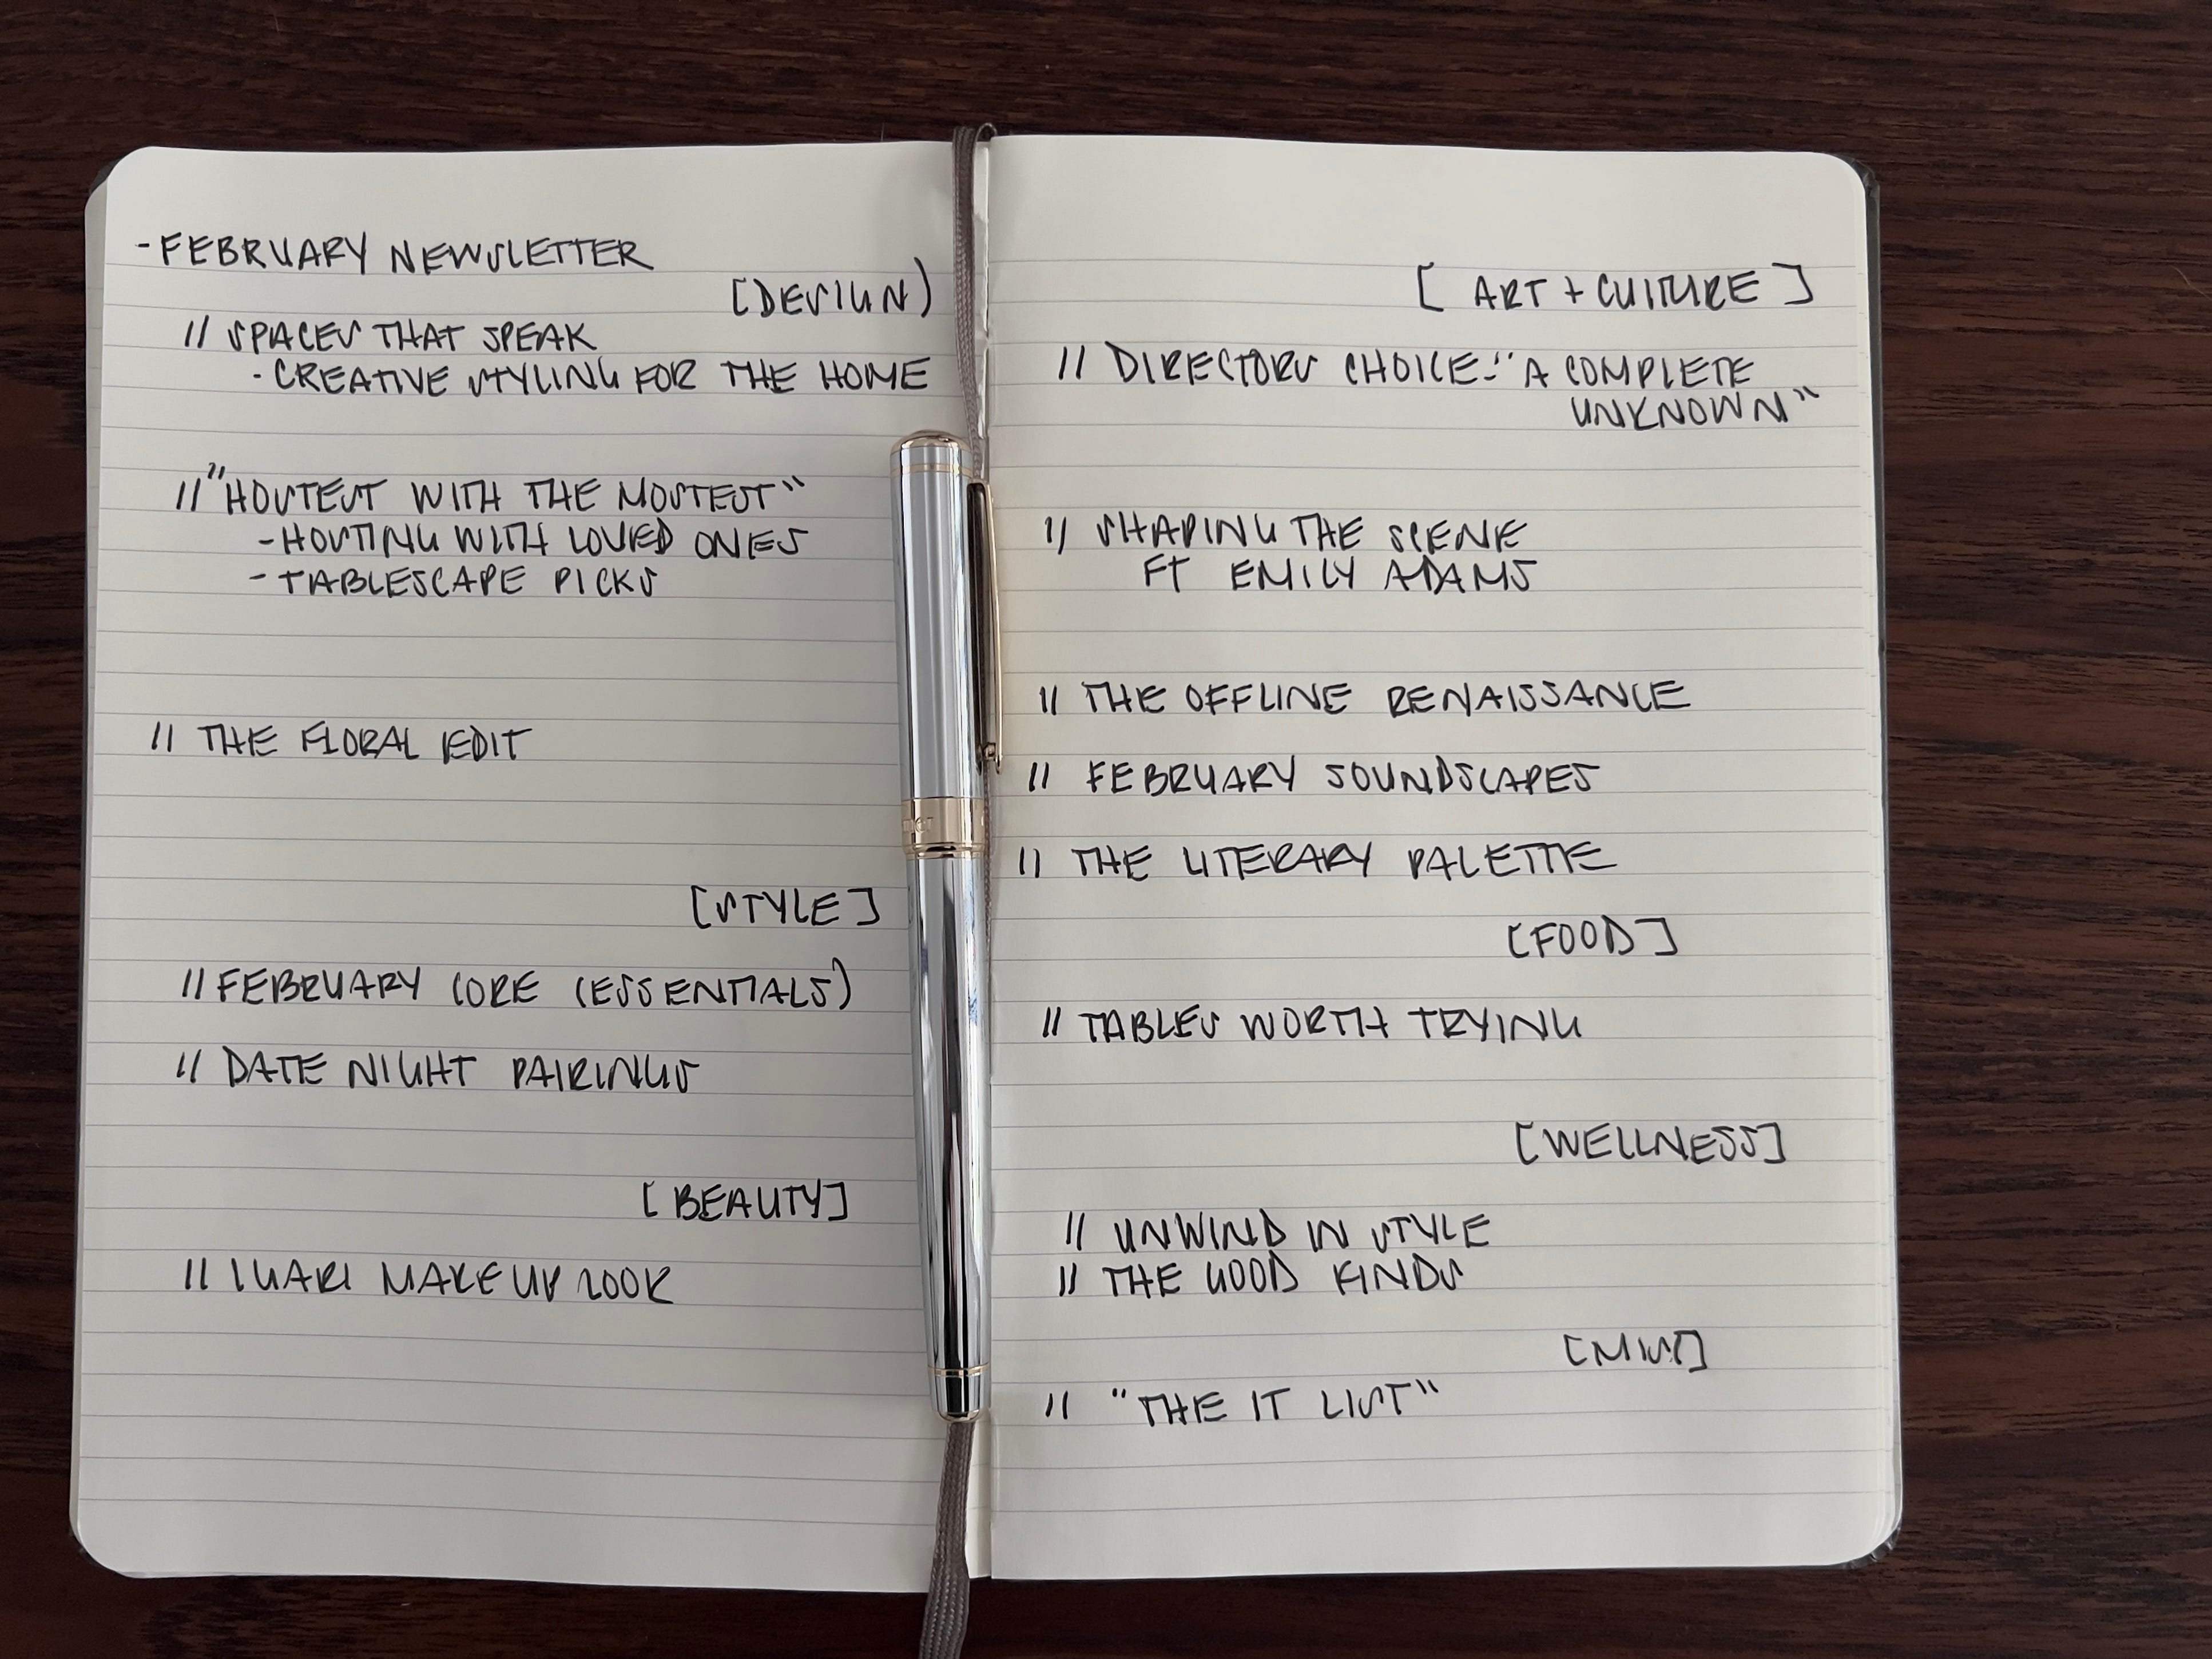 - FEBRUARY NEWSLETTER
[DESIGN)
// SPACES THAT SPEAK
- CREATIVE STYLING FOR THE HOME
// "HOSTEST WITH THE MOSTEST"
- HOSTING WITH LOVED ONES
- TABLESCAPE PICKS
// THE FLORAL EDIT
[STYLE]
// FEBRUARY CORE (ESSENTIALS)
// DATE NIGHT PAIRINGS
[BEAUTY]
// MAKEUP LOOK
[ART + CULTURE]
// DIRECTORS CHOICE: "A COMPLETE
UNKNOWN"
// SHAPING THE SCENE
FT EMILY ADAMS
// THE OFFLINE RENAISSANCE
// FEBRUARY SOUNDSCAPES
// THE LITERARY PALETTE
[FOOD]
// TABLES WORTH TRYING
[WELLNESS]
// UNWIND IN STYLE
// THE GOOD KINDS
// "THE IT LIST"